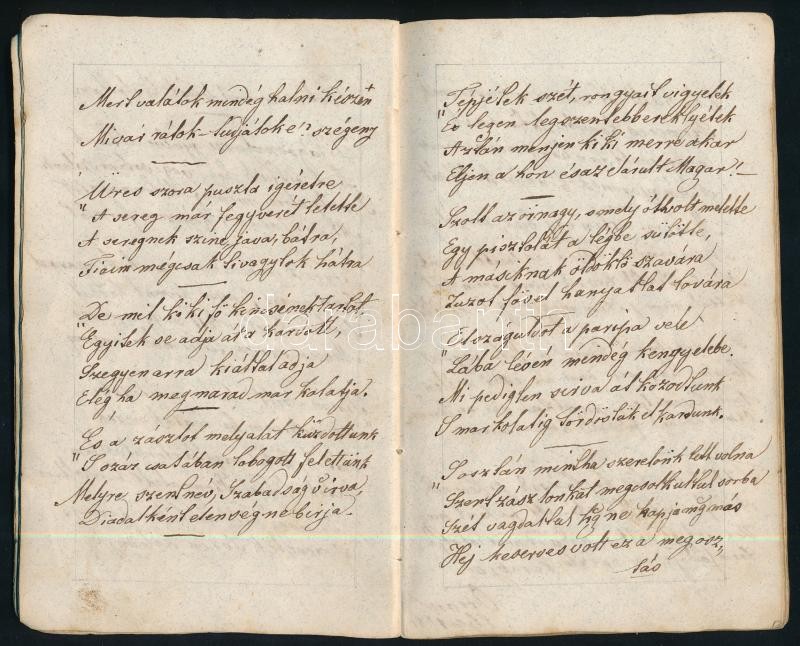 Mert valátok mindég halni készen
Mi vár rátok – tudjátoké? szégeny
Üres szóra puszta igéretre
"A sereg már fegyverét letette
A seregnek színe, java, bátra,
Fiaim mégcsak ti vagytok hátra
De mit ki ki fő kincsének tartot
"Egyitek se adja át a kardott,
Szegyen arra ki általadja
Elég ha megmarad markalatja.
És a zászlot melyalat küzdottunk
"S ozáz csatában lobogott felettünk
Melyre szent név, Szabadság virva,
Diadalként elenség ne birja.
Tépjétek szét, rongyait vigyétek
"És legen legszentebb ereklyétek
Aztán menjen ki ki merre akar
Eljen a hon és az elárult Magar!–
Szolt az örnagy, s mely ött volt melette
Egy pisztolát a légbe sütötte,
A másiknak öldöklő szavára
Zuzot fövel hanyatlat lovára
Elszáguldot a paripa vele
"Lába lévén mindég kengyelebe.
Mi pediglen sirva át kozodtunk
S markolatig tördröluk el kardunk.
S osztán mintha szeretönk lett volna
"Szent zászlonkat megcsolkultuk sorba
Szét vagdaltuk hogy ne kapja meg más
Hej keserves volt ez a megosz,
tás
darabanth